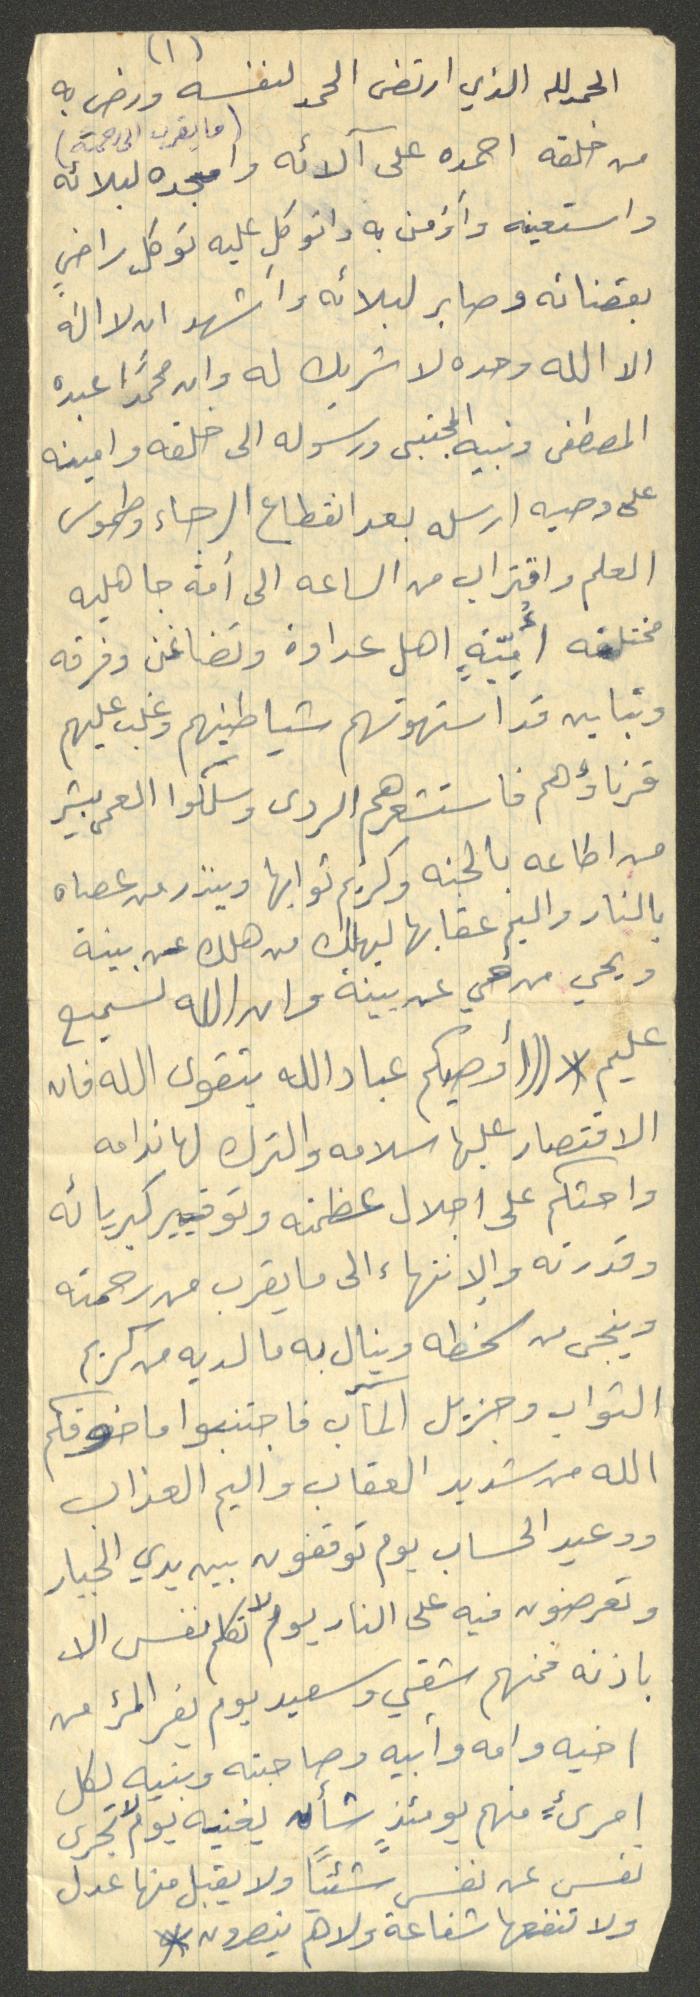 (١)
الحمد لله الذي ارتضى الحمد لنفسه ورضي به
(ما يقرب الى رحمته)
من خلقه احمده على آلائه وامجده لبلائه
واستعينه وأؤمن به واتوكل عليه توكل راضيٍ
بقضائه وصابر لبلائه وأشهد ان لا اله
الا الله وحده لا شريك له وان محمدًا عبده
المصطفى ونبيه المجتبى ورسوله الى خلقه وامينه
على وحيه ارسله بعد انقطاع الرجاء وطموس
العلم واقتراب من الساعه الى أمة جاهليه
مختلفه أُمِّيّةٍ اهل عداوة وتضاغن وفرقه
وتباين قد استهوتهم شياطينهم وغلب عليهم
قرناؤهم فاستشعرهم الردى وسلكوا العمى يبشر
من اطاعه بالجنه وكريم ثوابها وينذر من عصاه
بالنار واليم عقابها ليهلك من هلك عن بينة
ويحي من حي عن بينة وان الله لسميع
عليم * ((أوصيكم عباد الله بتقوى الله فان
الاقتصار عليها سلامه والترك لها ندامه
واحثكم على اجلال عظمته وتوقير كبريائه
وقدرته والإنتهاء الى ما يقرب من رحمته
وينجي من سخطه وينال به ما لديه من كريم
الثواب وجزيل المآب فاجتنبوا ما خوفكم
الله من شديد العقاب واليم العذاب
ووعيد الحساب يوم توقفون بين يدي الجبار
وتعرضون فيه على النار يوم لا تكلم نفس الا
باذنه فمنهم شقي وسعيد يوم يفر المرؤ من
اخيه وامه وأبيه وصاحبته وبنيه لكل
إمرئٍ منهم يومئذٍ شأن يغنيه يوم لا تجزى
نفس عن نفس شئيًا ولا يقبل منها عدل
ولا تنفعها شفاعة ولا هم ينصرون *